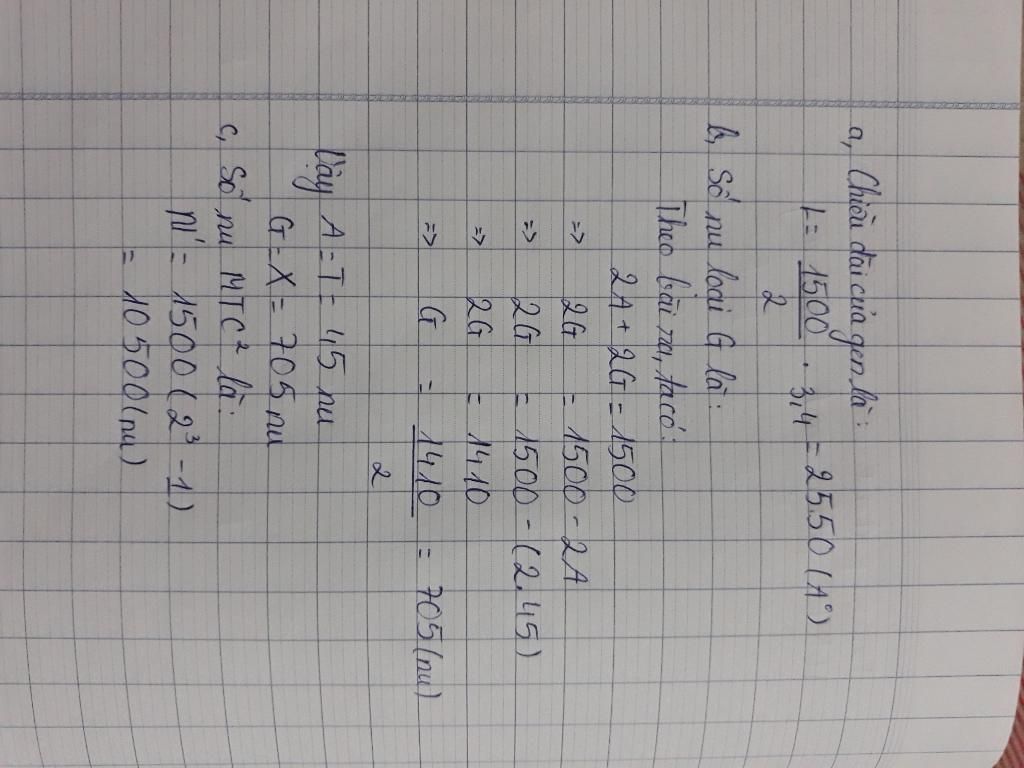 a, Chiều dài của gen là:
L = 1500/2 . 3,4 = 2550 (A°)
b, Số nu loại G là:
Theo bài ra, ta có:
2A + 2G = 1500
=> 2G = 1500 - 2A
=> 2G = 1500 - (2.45)
=> 2G = 1410
=> G = 1410/2 = 705 (nu)
Vậy A = T = 45 nu
G = X = 705 nu
c, Số nu MTC² là:
N' = 1500 (2³ - 1)
= 10 500 (nu)